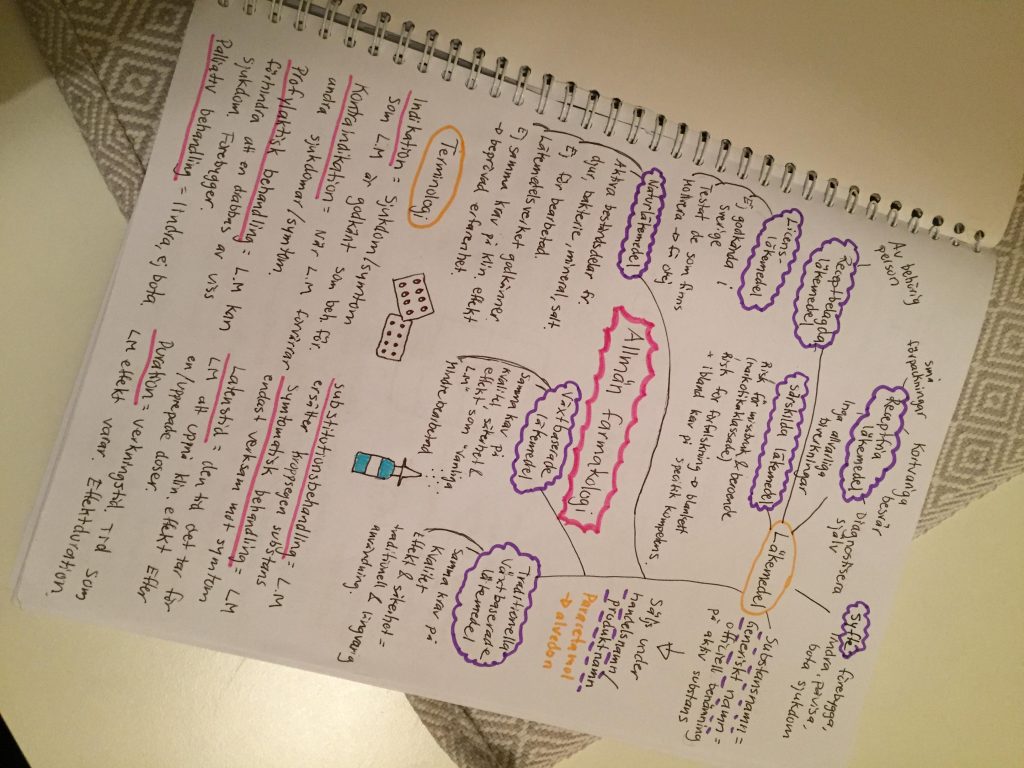 Allmän farmakologi
Läkemedel
Syfte
förebygga,
lindra, påvisa,
bota sjukdom
Substansnamn =
Generiskt namn =
officiell benämning
på aktiv substans
Säljs under
handelsnamn/
produktnamn
Paracetamol
→ alvedon
Receptfria
läkemedel
små
förpackningar
Kortvariga
besvär
Diagnostisera
själv
Inga allvarliga
biverkningar
Receptbelagda
läkemedel
Av behörig
person
Särskilda läkemedel
Risk för missbruk & beroende
(narkotikaklassade)
Risk för förfalskning → blankett
+ ibland krav på specifik kompetens.
Licens-
läkemedel
Ej godkända i
Sverige
Testat de som finns
Naturläkemedel
Aktiva beståndsdelar fr
djur, bakterie, mineral, salt.
Ej för bearbetad.
Läkemedelsverket godkänner
Ej samma krav på klin effekt
→ beprövad erfarenhet.
Växtbaserade
läkemedel
Samma krav på
kvalité,
effekt, säkerhet &
LM som vanliga
Mindre bearbetad
Traditionella
växtbaserade
läkemedel
Samma krav på
kvalitet
Effekt & säkerhet =
traditionell & långvarig
användning.
Terminologi
Indikation = sjukdom/symtom
som LM är godkänt som beh. för.
Kontraindikation = När LM förvärrar
andra sjukdomar/symtom.
Profylaktisk behandling = LM kan
förhindra att en drabbas av viss
sjukdom. Förebygger.
Palliativ behandling = lindra, ej bota.
Substitutionsbehandling = LM
ersätter kroppsegen substans
Symtomatisk behandling = LM
endast verksam mot symtom
Latenstid = den tid det tar för
LM att uppnå klin effekt efter
en/upprepade doser.
Duration = verkningstid. Tid som
LM effekt varar. Effektduration.